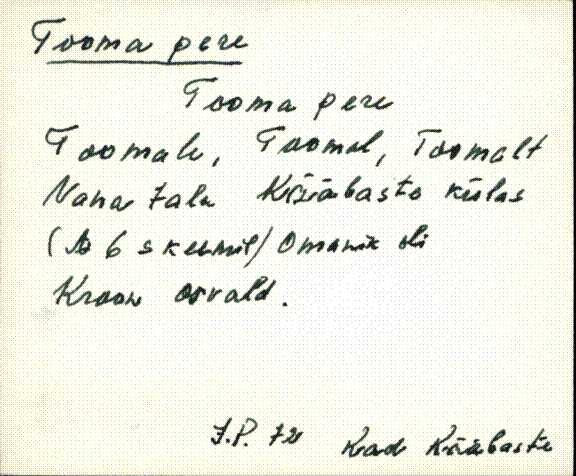 Tooma pere
Tooma pere
Toomale, Toomal, Toomalt
Vana talu Kääbaste külas
Omanik oli
Kroon Osvald.
J.P. 72 Kad Kääbaste